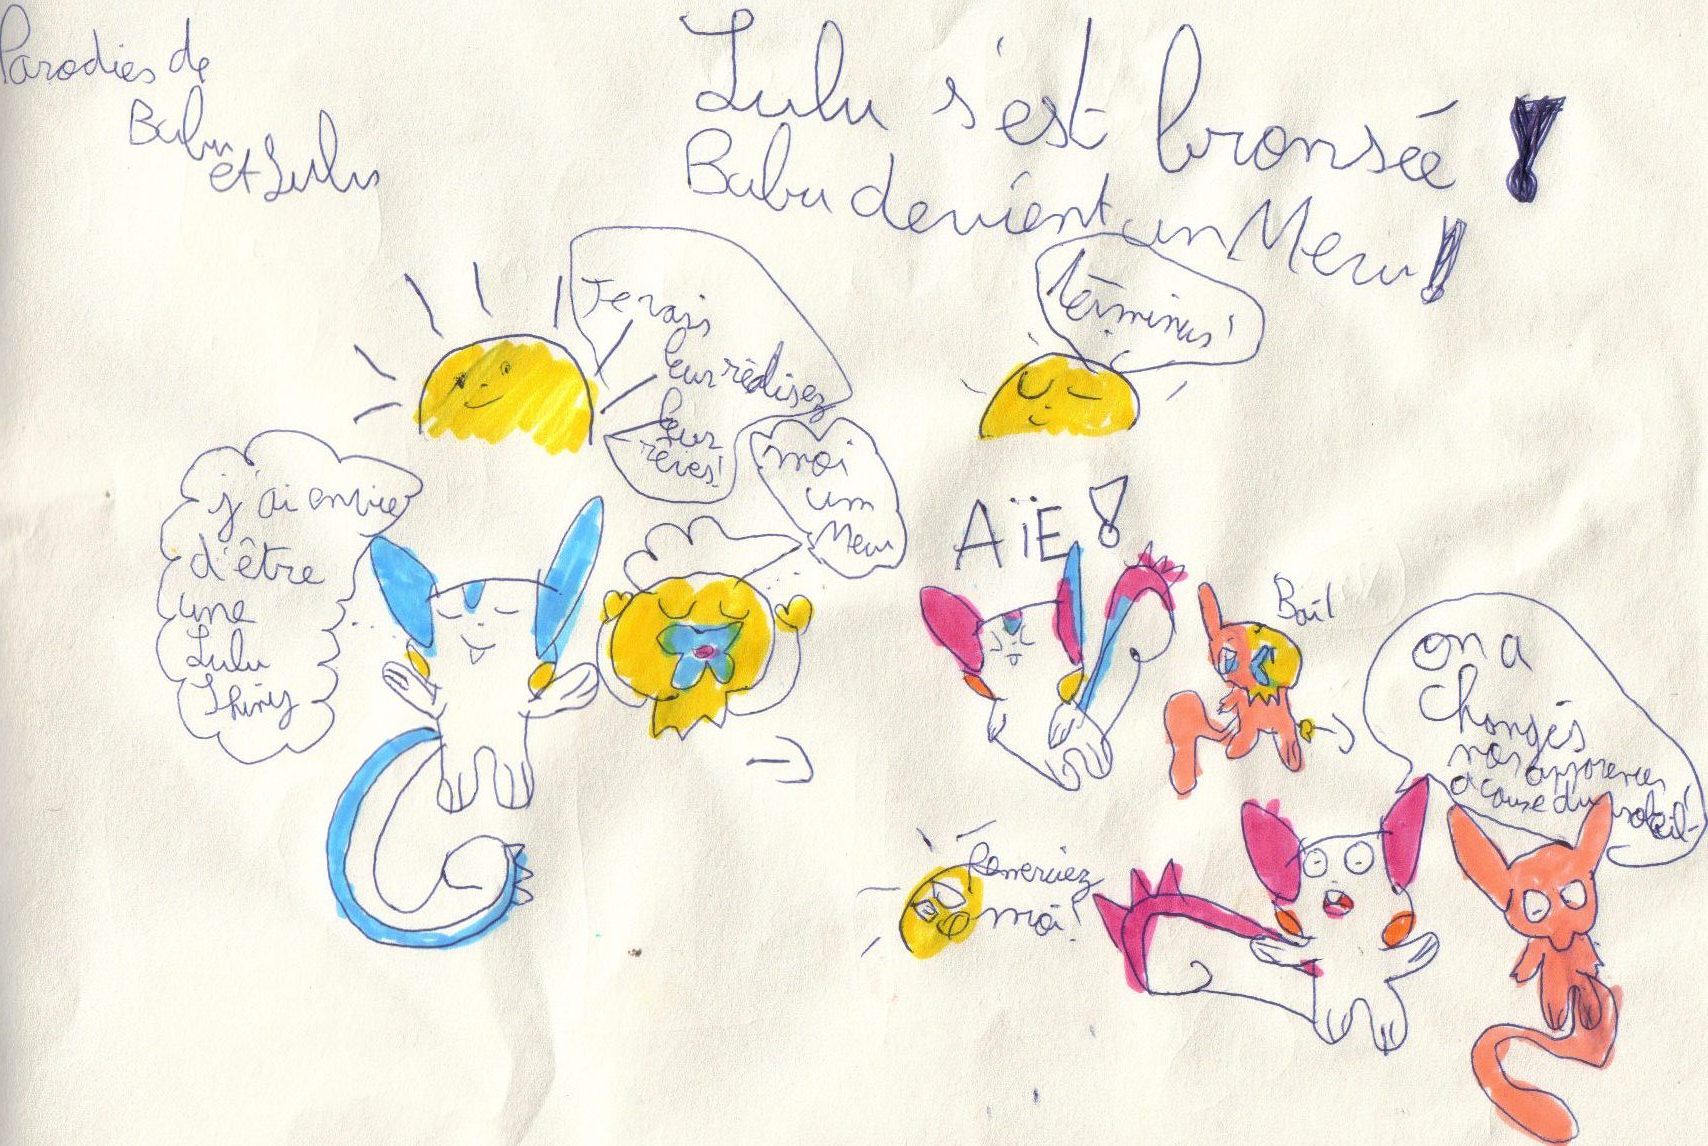 Parodies de
Babu
et Lulu
Lulu s'est bronsée !
Babu devient un Mew !
Je vais
leur réalisez
leur
rêves!
Términus!
j'ai envie
d'être
une
Lulu
Shiny
moi
um
Mew
AÏE !
on a
changés
nos apparences
a cause du soleil!
Remerciez
moi!